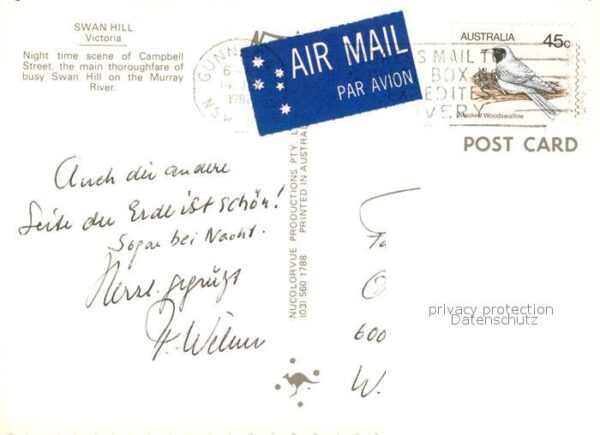 SWAN HILL
Victoria
Night time scene of Campbell
Street, the main thoroughfare of
busy Swan Hill on the Murray
River.
AIR MAIL
PAR AVION
AUSTRALIA
45c
Masked Woodswallow
S MAIL T
BOX
EDITES
VERY
POST CARD
NUCOLORVUE PRODUCTIONS PTY. L
(03) 560 1788 PRINTED IN AUSTRAL
Auch die andere
Seite der Erde ist schön!
Sogar bei Nacht.
Herzl. gegrüßt
600
W.
privacy protection
Datenschutz